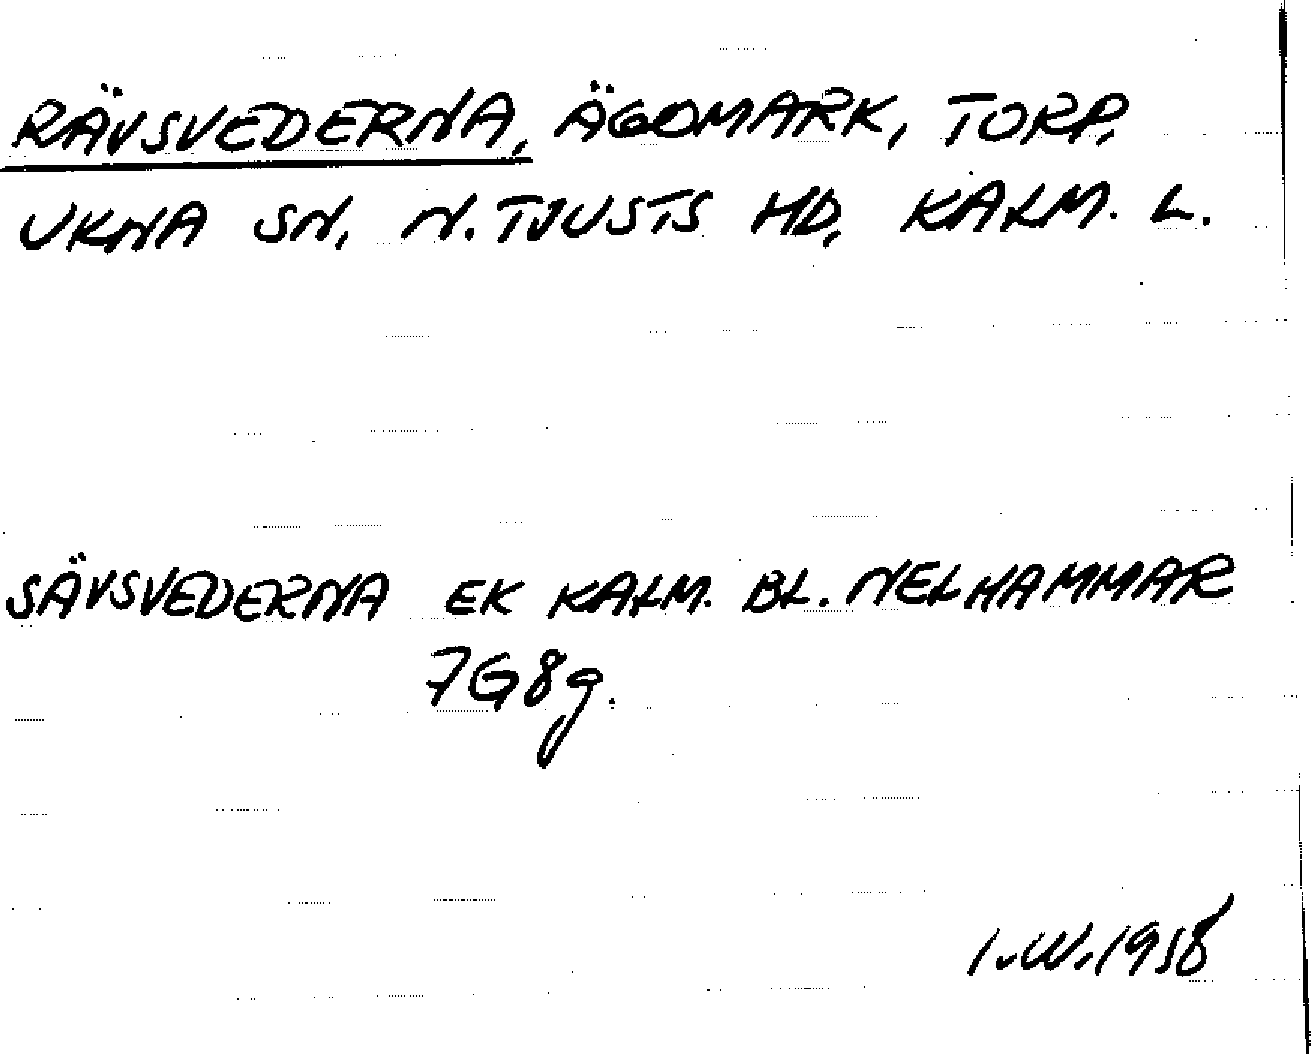 RÄVSVEDERNA, ÄGOMARK, TORP,
UKNA SN, N. TJUSTS HD, KALM. L.
SÄVSVEDERNA EK KALM. BL. NELHAMMAR
7G8g.
I.W. 1958